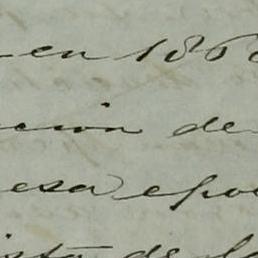 en 186
cion de
esa epo
ista de la